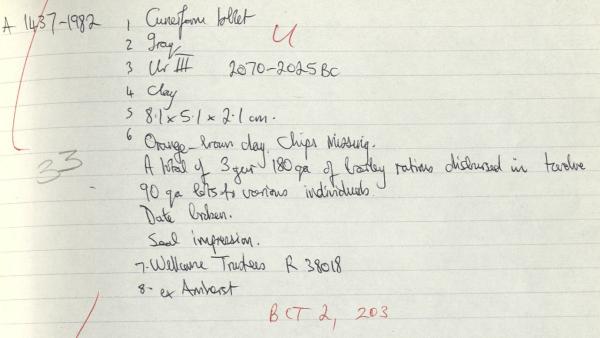 A 1437-1982 1 Cuneiform tablet
U
2 Iraq
3 Ur III 2070-2025 BC
4 Clay
5 8.1 x 5.1 x 2.1 cm.
6 Orange-brown clay, Chips Missing.
A total of 3 gur 180 qa of barley rations disbursed in twelve
33
90 qa lots to various individuals.
Date broken.
Seal impression.
7. Wellcome Trustees R 38018
8. ex Amherst
BCT 2, 203